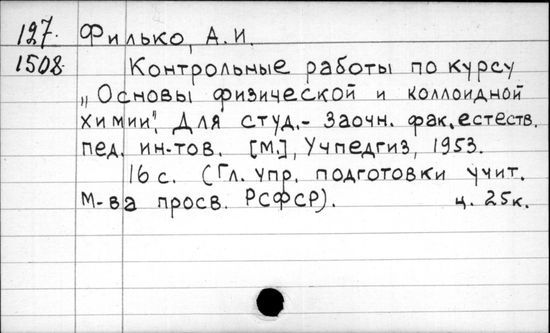 127. Филько, А.И.
1508. Контрольные работы по курсу
„Основы физической и коллоидной
химии". Для студ.- заочн. фак. естеств.
пед. ин-тов. [М.], Учпедгиз, 1953.
16 с. (Гл. упр. подготовки учит.
М-ва просв. РСФСР). ц. 25к.